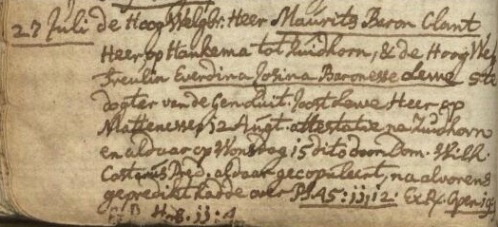 27 Julij de Hoog Welgb: Heer Maurits Baron Clant
Heer op Hankema tot Zuidhorn, & de Hoog Wel
Freulin Everdina Josina Baronesse Lewe
dogter van de Gen Luit. Joost Lewe Heer op
Mattenesse, 12 Augt. attestatie na Zuidhorn
en aldaar op Wonsdag 15 dito door Dom. Wilh.
Costerus Pred. aldaar gecopuleert, na alvorens
gepredikt hadde over Ps. 45: 11, 12.
Hrb. 11: 4